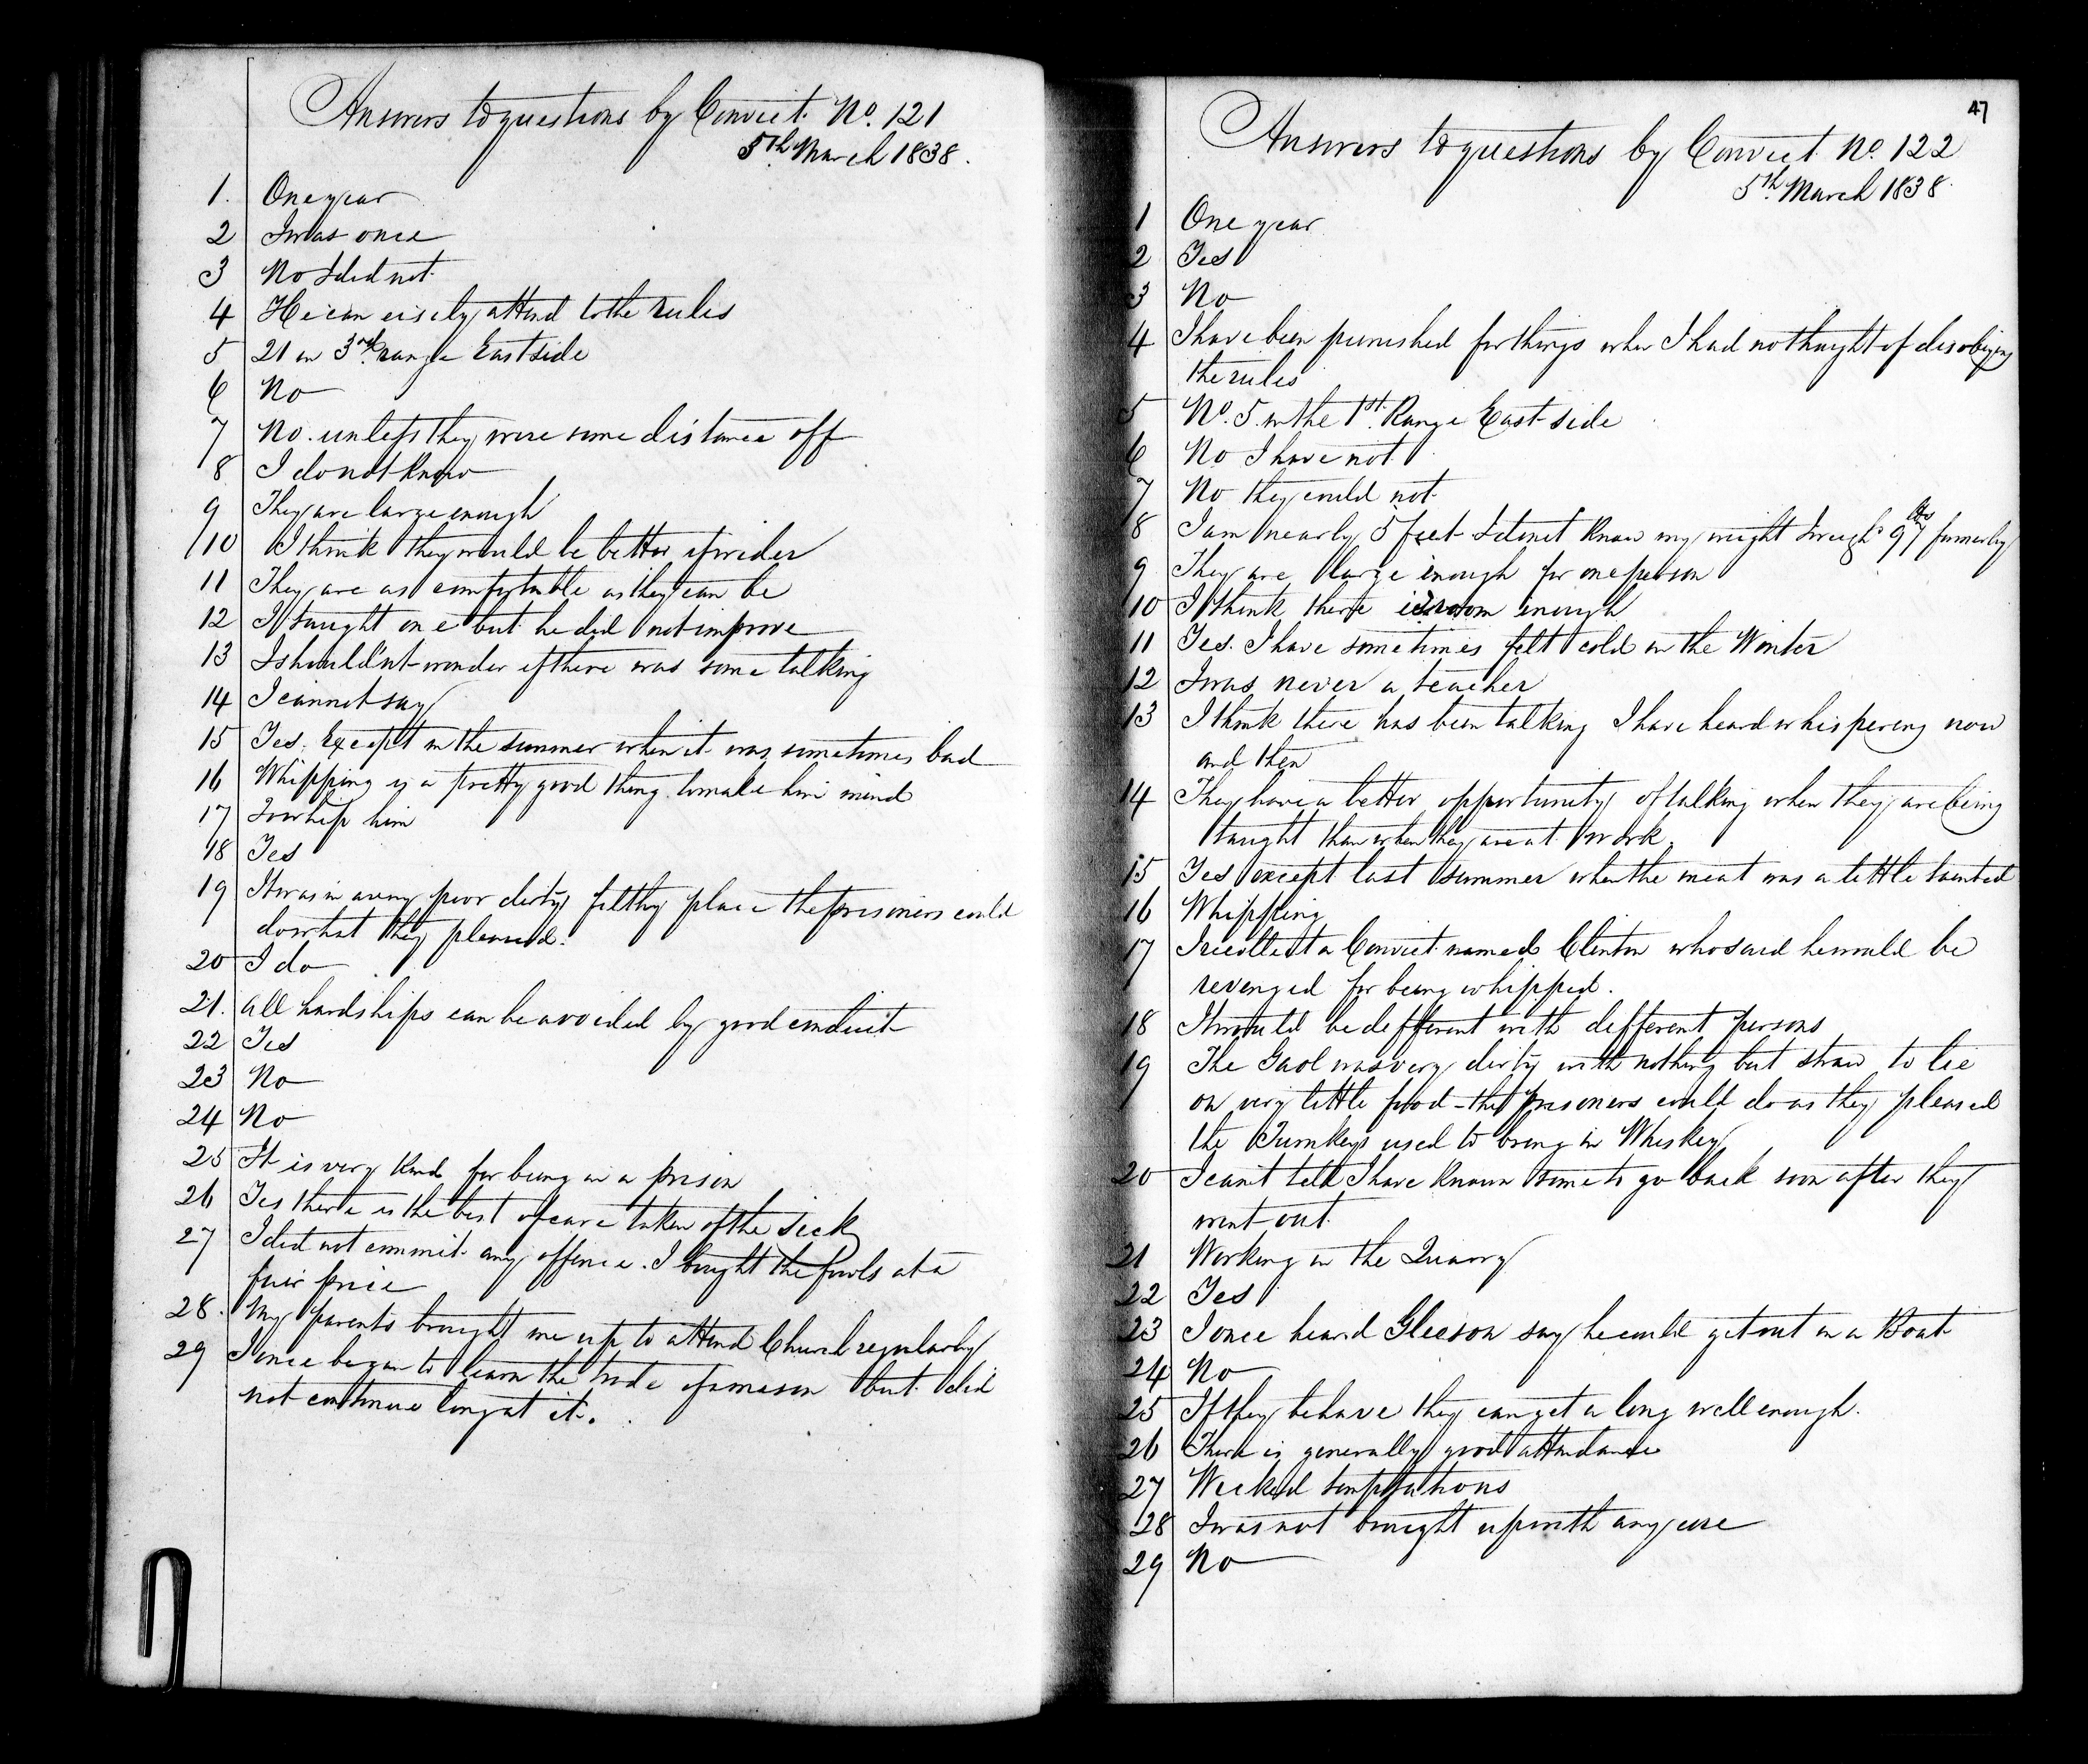 Answers to questions by Convict No. 121
5th March 1838.
1. One year
2 I was once
3 No I did not
4 He can eisely attend to the rules
5 21 in 3rd range East side
6 No
7 No. unless they were some distance off
8 I do not know
9 They are large enough
10 I think they would be better if wider
11 They are as comfortable as they can be
12 I taught one but he did not improve
13 I should'nt wonder if there was some talking
14 I cannot say
15 Yes. Except in the summer when it was sometimes bad
16 Whipping is a pretty good thing to make him mind
17 To whip him
18 Yes
19 It was in a very poor dirty filthy place the prisoners could
do what they pleased.
20 I do
21. All hardships can be avoided by good conduct
22 Yes
23 No
24 No
25 It is very kind for being in a prison
26 Yes there is the best of care taken of the sick
27 I did not commit any offence. I bought the fowls at a
fair price
28. My parents brought me up to attend Church regularly
29 I once began to learn the trade of a mason but did
not continue long at it.
47
Answers to questions by Convict No. 122
5th March 1838.
1 One year
2 Yes
3 No
4 I have been punished for things when I had no thought of disobeying
the rules
5 No. 5 in the 1st. Range East side
6 No I have not
7 No they could not
8 I am nearly 5 feet I do not know my weight I weigh'd 97 lbs formerly
9 They are large enough for one person
10 I think there is room enough
11 Yes. I have sometimes felt cold in the Winter
12 I was never a teacher
13 I think there has been talking I have heard whispering now
and then
14 They have a better opportunity of talking when they are being
taught than when they are at work.
15 Yes except last summer when the meat was a little tainted
16 Whipping
17 I recollect a Convict named Clinton who said he would be
revenged for being whipped.
18 It would be defferent with defferent persons
19 The Gaol was very dirty with nothing but straw to lie
on very little food - the prisoners could do as they pleased
the Turnkeys used to bring in Whiskey
20 I can't tell I have known some to go back soon after they
went out.
21 Working in the Quarry
22 Yes
23 I once heard Gleeson say he could get out in a Boat
24 No
25 If they behave they can get a long well enough.
26 There is generally good attendance
27 Wicked temptations
28 I was not brought up with any care
29 No